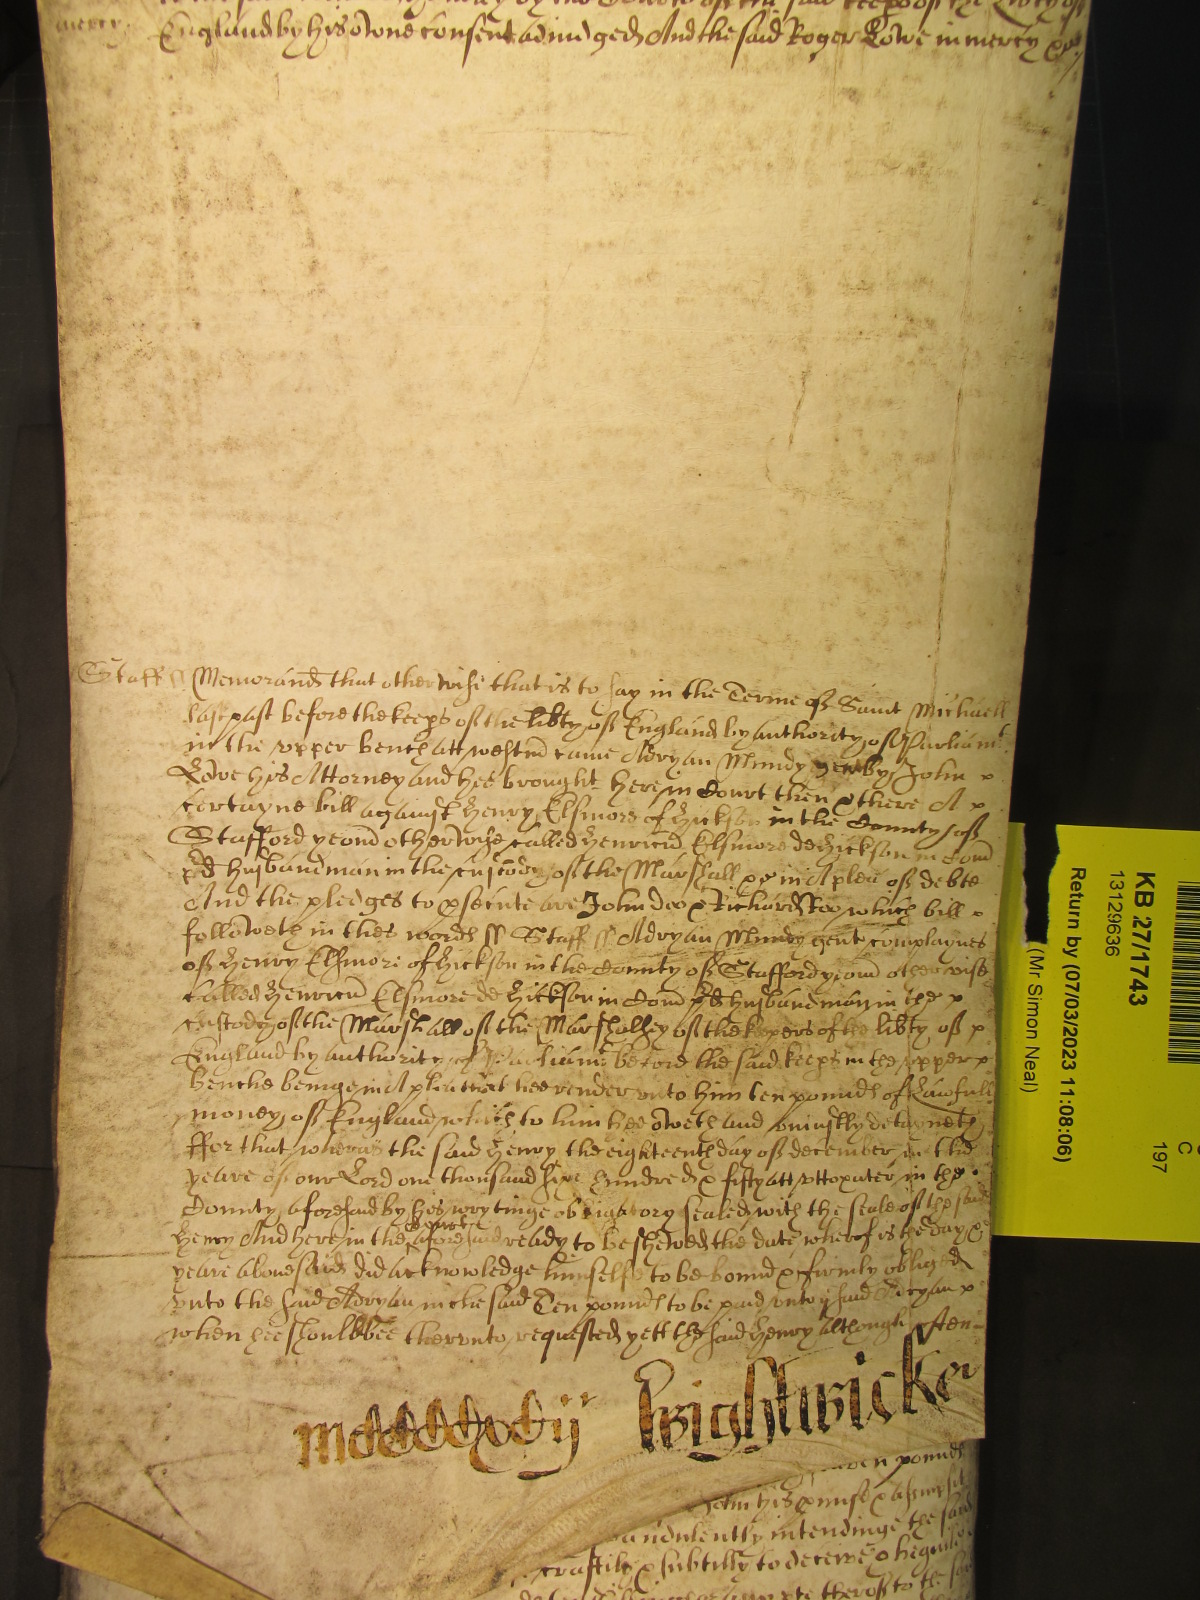 England by his owne consent adiudged And the said Roger Lowe in mercy &c
mercy
Staff ss Memorand that otherwise that is to say in the Terme of Saint Michaell
last past before the keeps of the libty of England by authority of Parliamt
in the vpper bench att Westm came Adryan Mundy gent by John
Lowe his Attorney and hee brought here in Court then & there A
certayne bill against Henry Elsmore of Hickson in the County of
Stafford yeom otherwise called Henricu Elsmore de Hickson in Com
pd husbandman in the custody of the Marshall &c in A plea of debte
And the pledges to psecute are John doo & Richard Roo which bill
followeth in thes words ss Staff ss Adryan Mundy gent complaynes
of Henry Elsmore of Hickson in the County of Stafford yeom otherwise
called Henricu Elsmore de Hickson in Com pd husbandman in the
custody of the Marshall of the Marshalsey of the keepers of the libty of
England by authority of Parliamt before the said keeps in the vpper
benche beinge in A plea that hee render vnto him ten pounds of Lawfull
money of England which to him hee oweth and vniustly detayneth
ffor that wheras the said Henry the eighteenth day of december in the
yeare of our Lord one thousand sixe hundred & fifty att vttoxater in the
County aforesaid by his wrytinge obligatory sealed with the seale of the said
Henry And here in the Court aforesaid ready to be shewed the date wherof is the day &
yeare abouesaid did acknowledge himselfe to be bound & firmly obliged
vnto the said Adryan in the said Ten pounds to be paid vnto ye said Adryan
when hee should bee thervnto requested yett the said Henry although often
mccccxcvij Wightwicke
pounds
his pmise & assumpsit
intendinge the said
craftily & subtilly to deceive &
therof to the
KB 27/1743
13129636
Return by (07/03/2023 11:08:06)
(Mr Simon Neal)
C
197